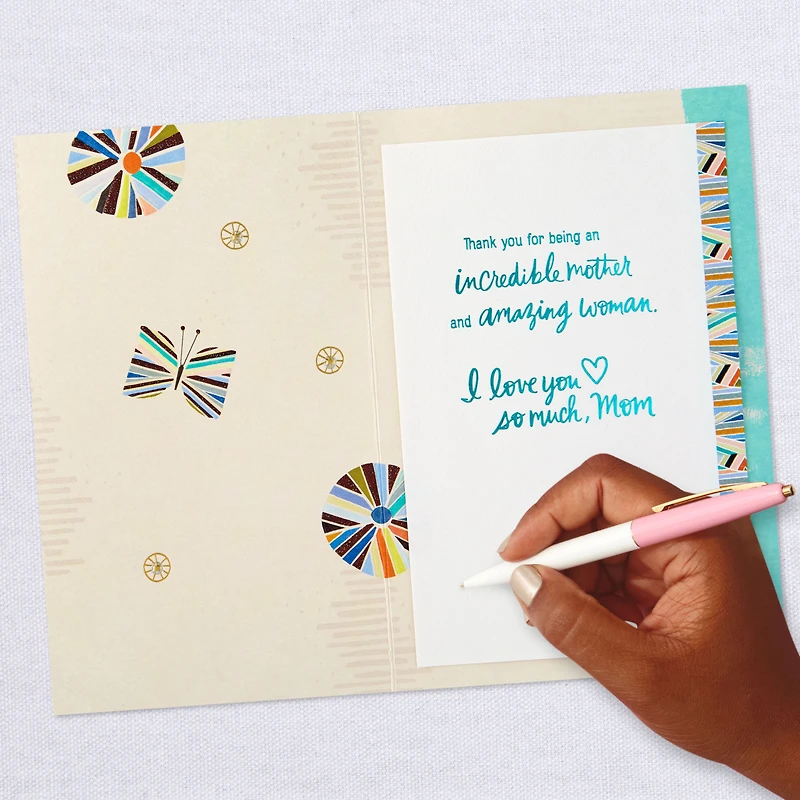 Thank you for being an
incredible mother
and amazing woman.
I love you
so much, Mom